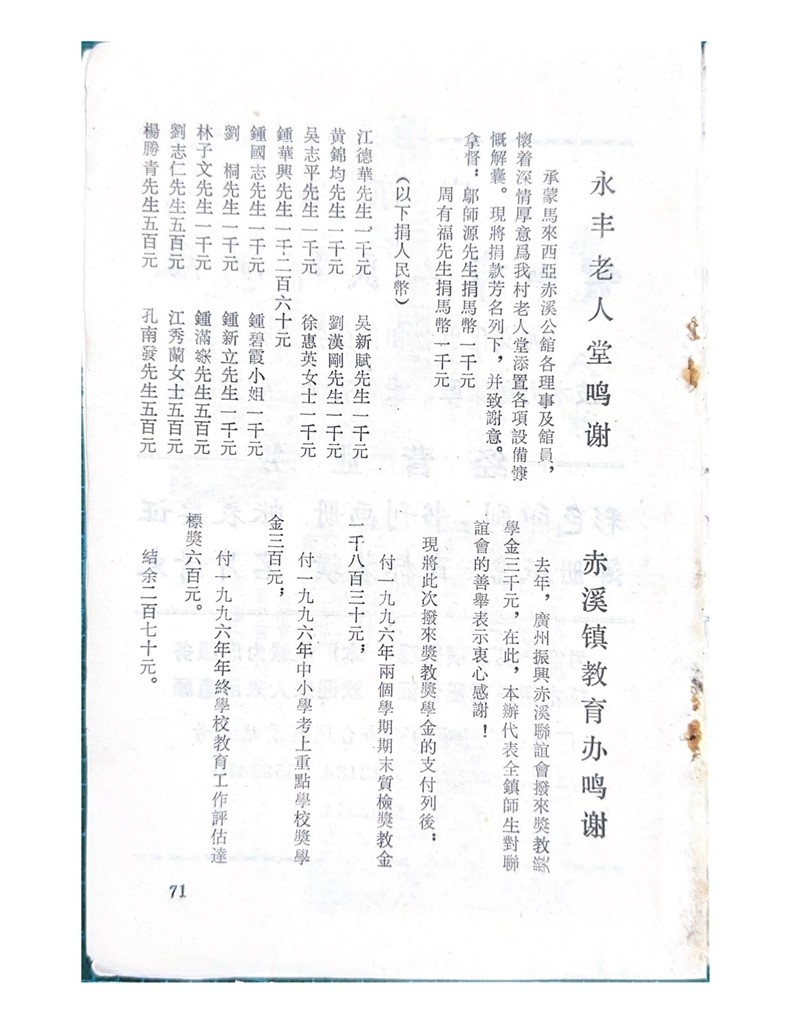 永丰老人堂鸣谢
承蒙馬來西亞赤溪公舘各理事及舘員，
懷着深情厚意爲我村老人堂添置各項設備慷
慨解囊。現將捐款芳名列下，并致謝意。
拿督：鄔師源先生捐馬幣一千元
周有福先生捐馬幣一千元
（以下捐人民幣）
江德華先生一千元 吴新賦先生一千元
黄錦均先生一千元 劉漢剛先生一千元
吴志平先生一千元 徐惠英女士一千元
鍾華興先生一千二百六十元
鍾國志先生一千元 鍾碧霞小姐一千元
劉 桐先生一千元 鍾新立先生一千元
林子文先生一千元 鍾滿先生五百元
劉志仁先生五百元 江秀蘭女士五百元
楊勝青先生五百元 孔南發先生五百元
赤溪镇教育办鸣谢
去年，廣州振興赤溪聯誼會撥來獎教獎
學金三千元，在此，本辦代表全鎮師生對聯
誼會的善舉表示衷心感謝！
現將此次撥來獎教獎學金的支付列後：
付一九九六年兩個學期期末質檢獎教金
一千八百三十元；
付一九九六年中小學考上重點學校獎學
金三百元；
付一九九六年年終學校教育工作評估達
標獎六百元。
結余二百七十元。
71